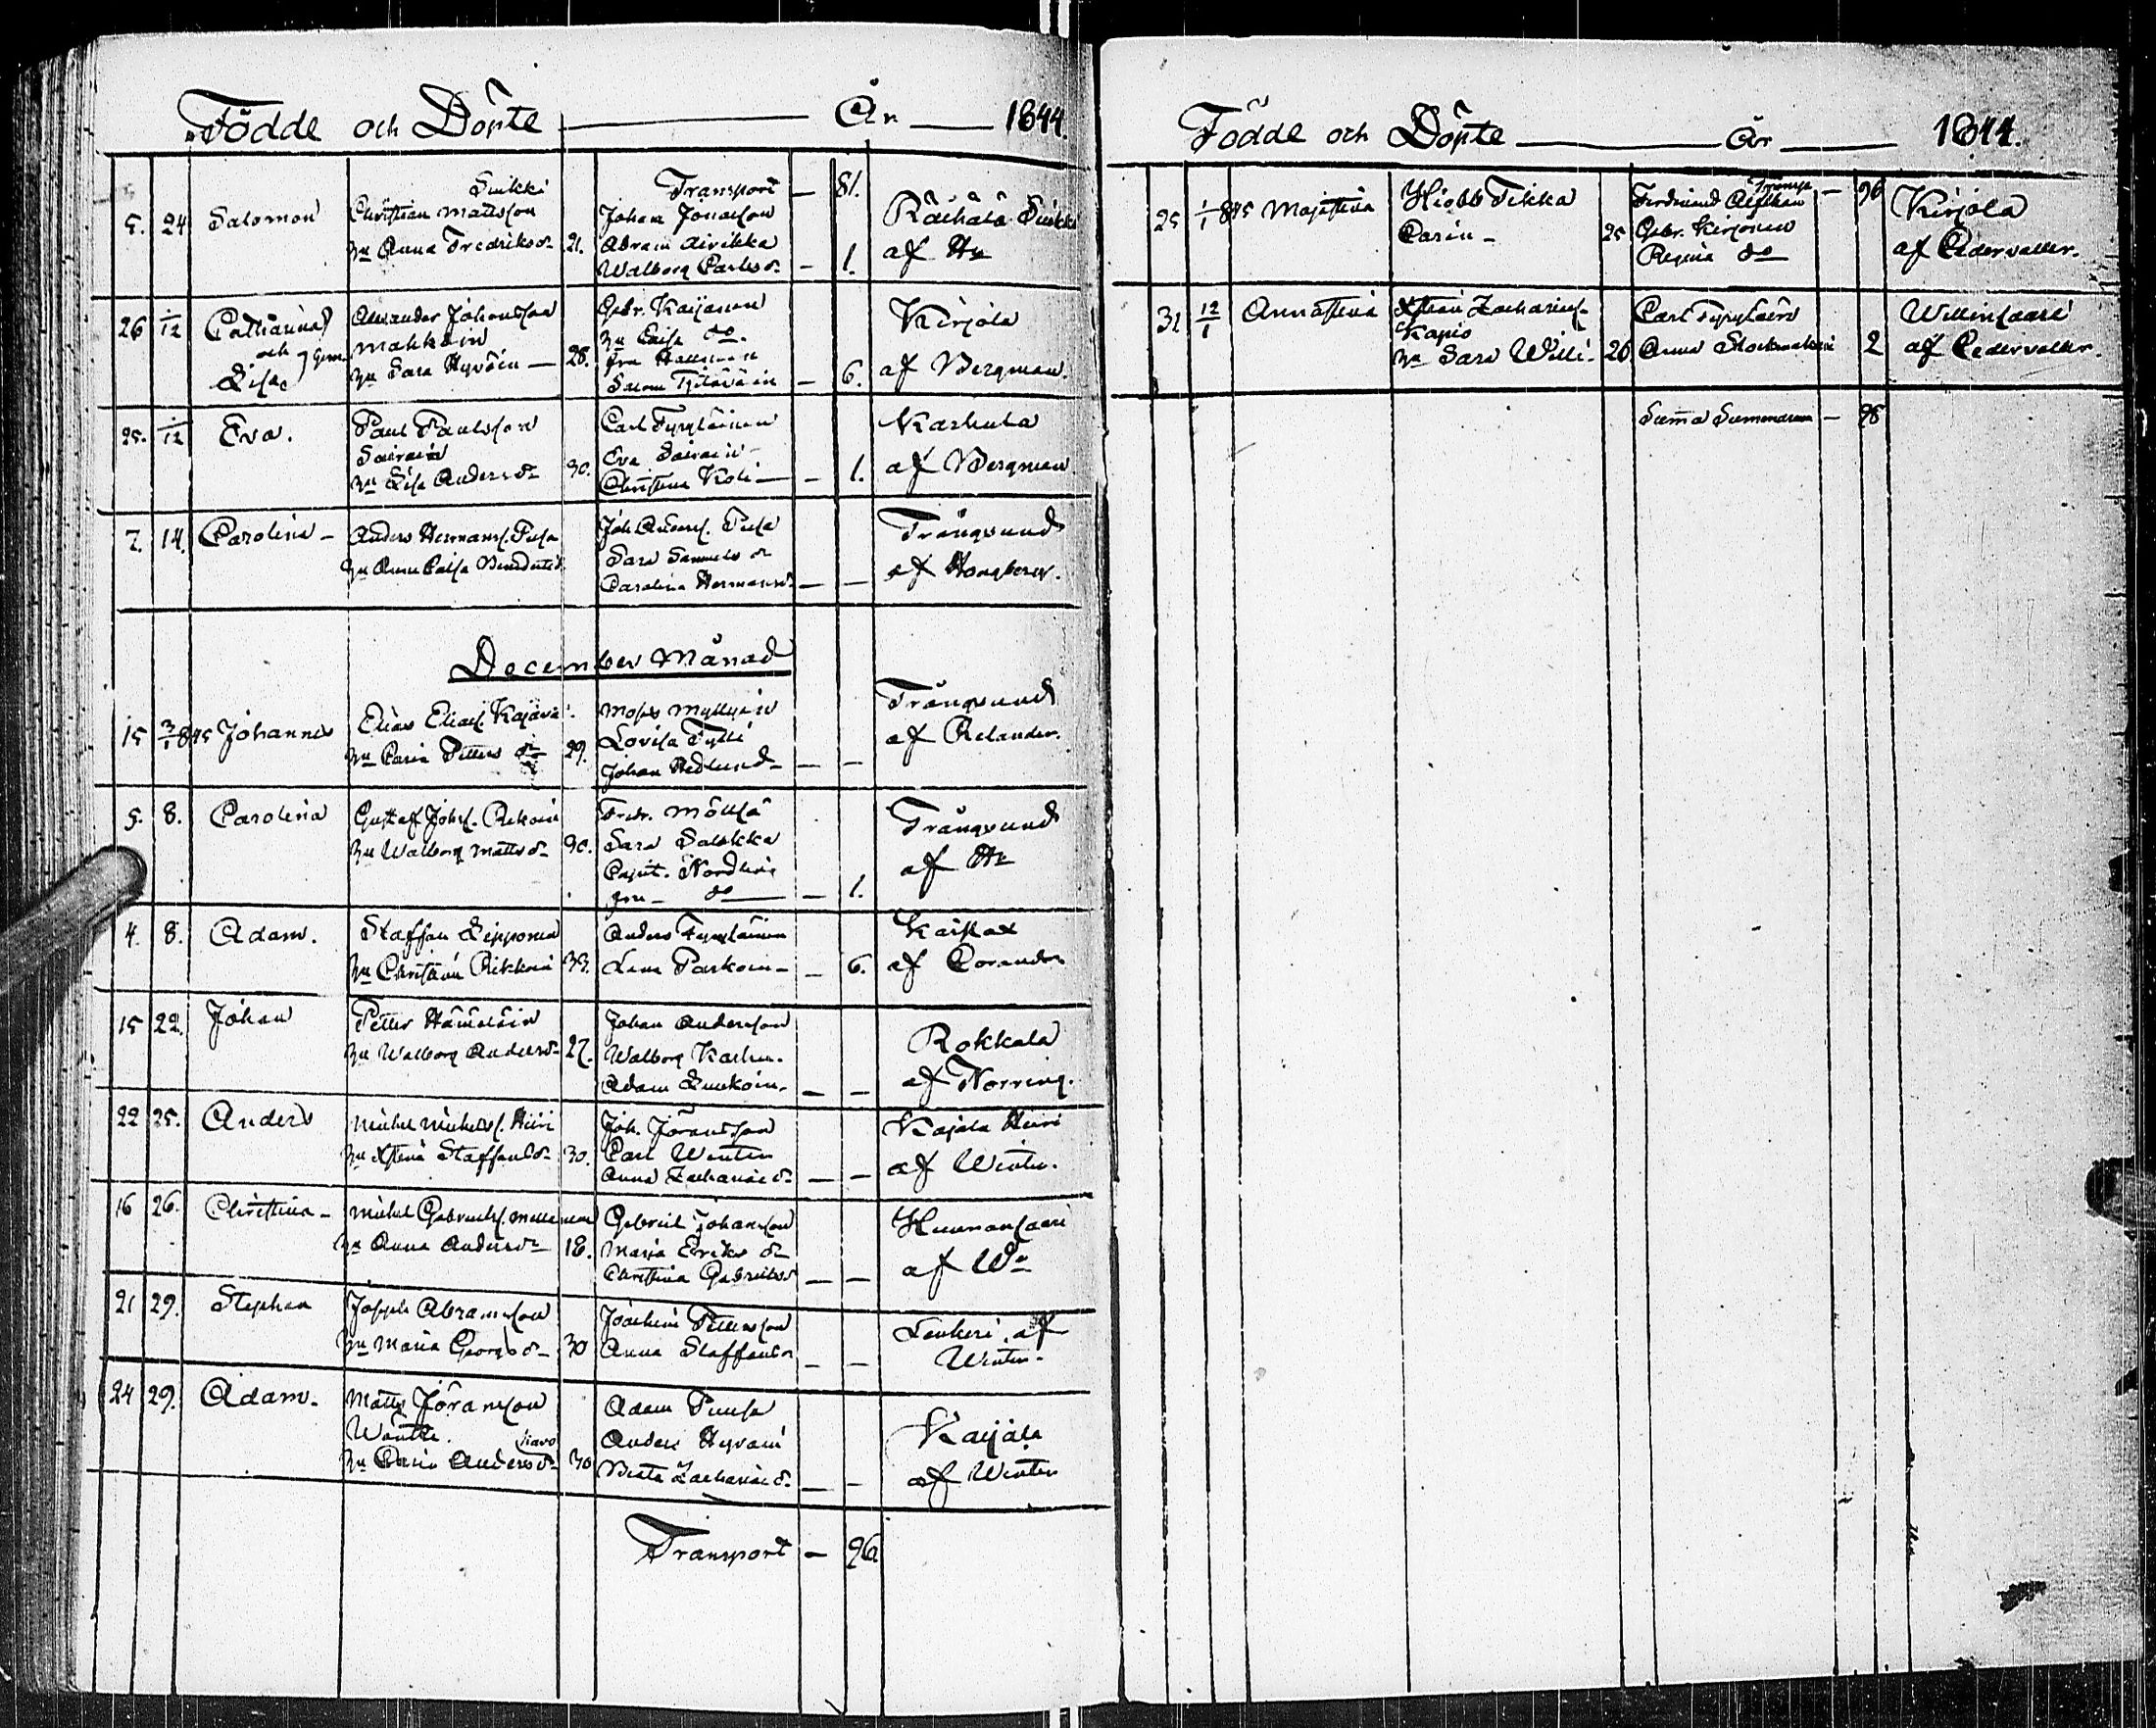 Födde och Döpte År 1844.
Transport — 81.
5. 24 Salomon
Suikki
Christian Mattsson
hu Anna Fredriksdr 21.
Johan Jonasson
Abram Airikka
Walborg Carlsdr — 1.
Räihälä Suikki
af Hr
26 1/12 Catharina
och Gem.
Lisa
Alexander Johansson
hu Sara Hyväin — 28.
Gabr. Kaijanen
hu Caisa do.
fru
Salom — 6.
Kirjola
af Bergman.
25. 1/12 Eva.
Paul Paulsson
Sairain
hu Lisa Andersdr 30.
Carl Pyyläinen
Eva Sairain
Christina Koli — 1.
Karhula
af Bergman
7. 14. Carolina
Anders Hermans. Pusa
hu Anna Caisa
Joh. Anders. Pusa
Sara Samuelsdr
Carolina Hermansdr — —
Trångsund
af Hougberg.
December Månad
15 3/1 845 Johannes
Elias Elias. Kajava
hu Carin Pettersdr 29.
Moses Myllyin
Lovisa Tylli
Johan Hedlund — —
Trångsund
af Relander.
5. 8. Carolina
Gustaf Johs.
hu Walborg Mattsdr 30.
Fredr.
Sara Salakka
Capit. Nordling
fru do — 1.
Trångsund
af Hr
4. 8. Adam.
Staffan Lipponen
hu Christina Rikkoin 33.
Anders
Lena Parkoin — 6.
Kaislax
af Corander
15 22. Johan
Petter Hämäläin
hu Walborg Andersdr 27.
Johan Andersson
Walborg Karhu.
Adam — —
Rokkala
af Norring.
22 25. Anders
Michel Michels. Hiiri
hu Xstina Staffansdr 30.
Joh. Göransson
Carl Winter
Anna Zachariædr — —
Kajala Hiiri
af Winter.
16 26. Christina
Michel Gabriels.
hu Anna Andersdr 18.
Gabriel Johansson
Maria Eriksdr
Christina Gabrielsdr — —
Hunnonsaari
af Wr
21 29. Stephan
Joseph Abramsson
hu Maria Georgsdr 30
Joachim Pettersson
Anna Staffansdr — —
Leukeri af
Winter
24 29. Adam.
Matts Göransson
Wäntti.
Karo
hu Carin Andersdr 30
Adam Puusa
Anders Hyväin
Beata Zachariædr — —
Karjala
af Winter
Transport — 96.
Födde och Döpte År 1844.
Transp. — 96
25 1/1 845 Majastina
Hiobb Tikka
Carin — 25
Ferdinand Alfthan
Gabr. Kirjonen
Regina do
Kirjola
af Cedervaller.
31 12/1 Annastina
Xstian Zacharias.
Kapio
hu Sara Willi 26
Carl Pyyläin
Anna 2
Willinsaari
af Cedervaller.
Summa Summarum — 98